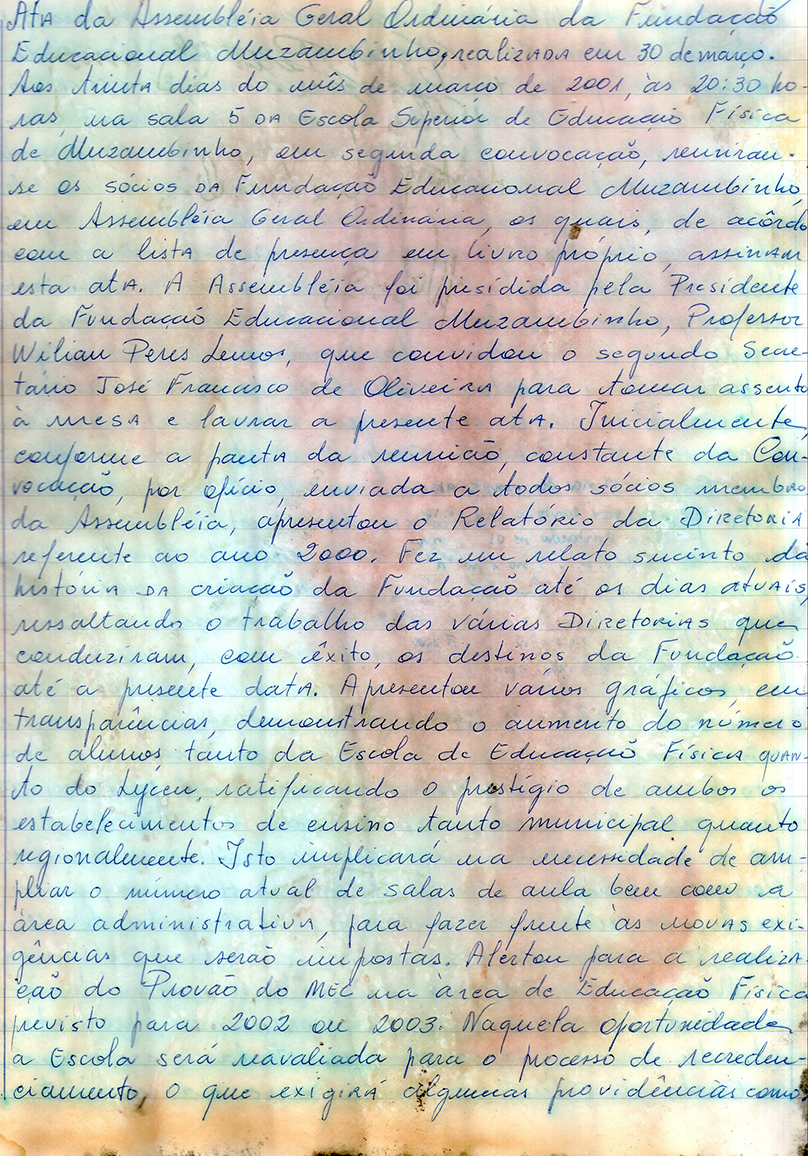 Ata da Assembléia Geral Ordinária da Fundação
Educacional Muzambinho, realizada em 30 de março.
Aos trinta dias do mês de março de 2001, às 20:30 ho-
ras, na sala 5 da Escola Superior de Educação Física
de Muzambinho, em segunda convocação, reuniram-
se os sócios da Fundação Educacional Muzambinho,
em Assembléia Geral Ordinária, os quais, de acôrdo
com a lista de presença em livro próprio, assinam
esta ata. A Assembléia foi presidida pela Presidente
da Fundação Educacional Muzambinho, Professor
Wilian Peres Lemos, que convidou o segundo Secre-
tário José Francisco de Oliveira para tomar assento
à mesa e lavrar a presente ata. Inicialmente,
conforme a pauta da reunião, constante da Con-
vocação, por ofício, enviada a todos sócios membro
da Assembléia, apresentou o Relatório da Diretoria
referente ao ano 2000. Fez um relato sucinto da
história da criação da Fundação até os dias atuais,
ressaltando o trabalho das várias Diretorias que
conduziram, com êxito, os destinos da Fundação
até a presente data. Apresentou vários gráficos, em
transparências, demonstrando o aumento do número
de alunos, tanto da Escola de Educação Física quan-
to do Lyceu, ratificando o prestígio de ambos os
estabelecimentos de ensino tanto municipal quanto
regionalmente. Isto implicará na necessidade de am-
pliar o número atual de salas de aula bem como a
área administrativa, para fazer frente às novas exi-
gências que serão impostas. Alertou para a realiza-
ção do Provão do MEC na área de Educação Física
previsto para 2002 ou 2003. Naquela oportunidade,
a Escola será reavaliada para o processo de recreden-
ciamento, o que exigirá algumas providências como: